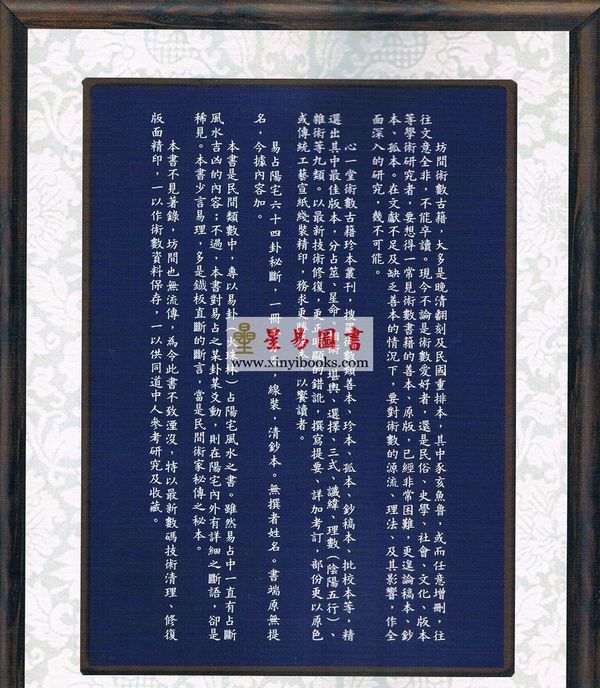 坊間術數古籍，大多是晚清翻刻及民國重排本，其中豕亥魚魯，或而任意增刪，往
往文意全非，不能卒讀。現今不論是術數愛好者，還是民俗、史學、社會、文化、版本
等學術研究者，要想得一常見術數書籍的善本、原版，已經非常困難，更遑論稿本、鈔
本、孤本。在文獻不足及缺乏善本的情況下，要對術數的源流、理法、及其影響，作全
面深入的研究，幾不可能。
心一堂術數古籍珍本叢刊，搜羅術數類善本、珍本、孤本、鈔稿本、批校本等，精
選出其中最佳版本，分占筮、星命、相術、堪輿、選擇、三式、讖緯、理數（陰陽五行）、
雜術等九類。以最新技術修復，更正明顯的錯訛，撰寫提要、詳加考訂，部份更以原色
或傳統工藝宣紙綫裝精印，務求更勝 本，以饗讀者。
易占陽宅六十四卦秘斷，一冊 ，線裝，清鈔本。無撰者姓名。書端原無提
名，今據內容加。
本書是民間類數中，專以易卦（火珠林）占陽宅風水之書。雖然易占中一直有占斷
風水吉凶的內容；不過，本書對易占之某卦某爻動，則在陽宅內外有詳細之斷語，卻是
稀見。本書少言易理，多是鐵板直斷的斷言，當是民間術家秘傳之秘本。
本書不見著錄，坊間也無流傳，為令此書不致湮沒，特以最新數碼技術清理、修復
版面精印，一以作術數資料保存，一以供同道中人參考研究及收藏。
星易圖書
www.xinyibooks.com